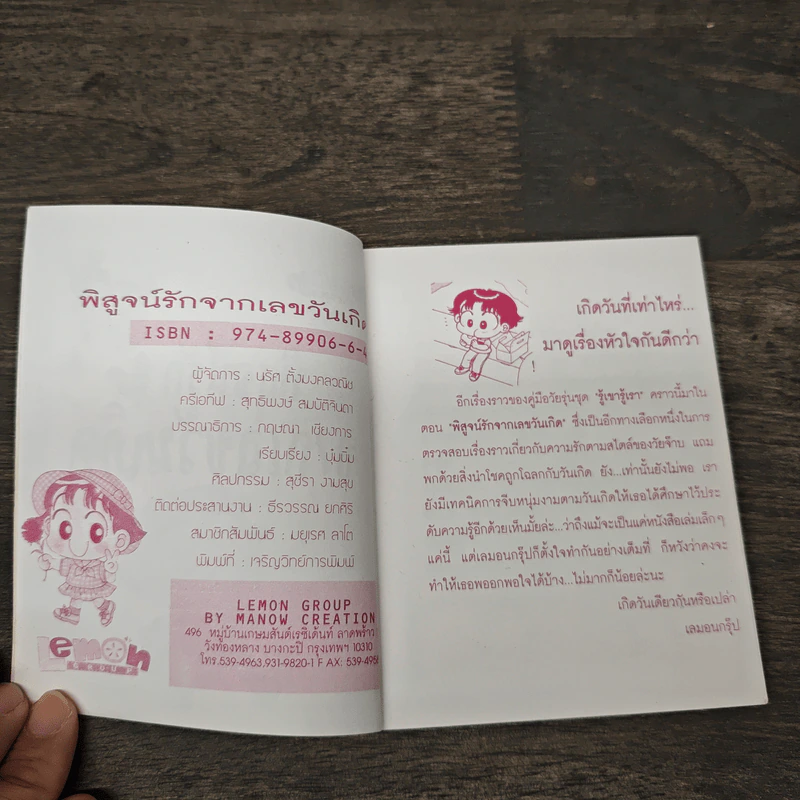 พิสูจน์รักจากเลขวันเกิด
ISBN : 974-89906-6-4
ผู้จัดการ : นริศ ตั้งมงคลวณิช
ครีเอทีฟ : สุทธิพงษ์ สมบัติจินดา
บรรณาธิการ : กฤษณา เชียงการ
เรียบเรียง : นุ่มนิ่ม
ศิลปกรรม : สุชีรา งามสุข
ติดต่อประสานงาน : ธีรวรรณ ยกศิริ
สมาชิกสัมพันธ์ : มยุเรศ ลาโต
พิมพ์ที่ : เจริญวิทย์การพิมพ์
LEMON GROUP
BY MANOW CREATION
496 หมู่บ้านเกษมสันต์เรซิเด้นท์ ลาดพร้าว
วังทองหลาง บางกะปิ กรุงเทพฯ 10310
โทร.539-4963,931-9820-1 F AX: 539-4956
Lemon
GROUP
เกิดวันที่เท่าไหร่...
มาดูเรื่องหัวใจกันดีกว่า
!
อีกเรื่องราวของคู่มือวัยรุ่นชุด "รู้เขารู้เรา" คราวนี้มาใน
ตอน "พิสูจน์รักจากเลขวันเกิด" ซึ่งเป็นอีกทางเลือกหนึ่งในการ
ตรวจสอบเรื่องราวเกี่ยวกับความรักตามสไตล์ของวัยจ๊าบ แถม
พกด้วยสิ่งนำโชคถูกโฉลกกับวันเกิด ยัง...เท่านั้นยังไม่พอ เรา
ยังมีเทคนิคการจีบหนุ่มงามตามวันเกิดให้เธอได้ศึกษาไว้ประ
ดับความรู้อีกด้วยเห็นมั้ยล่ะ...ว่าถึงแม้จะเป็นแค่หนังสือเล่มเล็กๆ
แค่นี้ แต่เลมอนกรุ๊ปก็ตั้งใจทำกันอย่างเต็มที่ ก็หวังว่าคงจะ
ทำให้เธอพออกพอใจได้บ้าง...ไม่มากก็น้อยล่ะนะ
เกิดวันเดียวกันหรือเปล่า
เลมอนกรุ๊ป